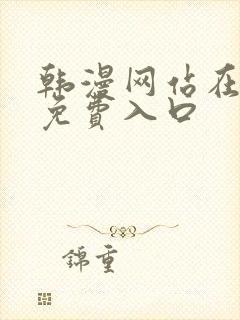 韩漫网站在
免費入口
錦重